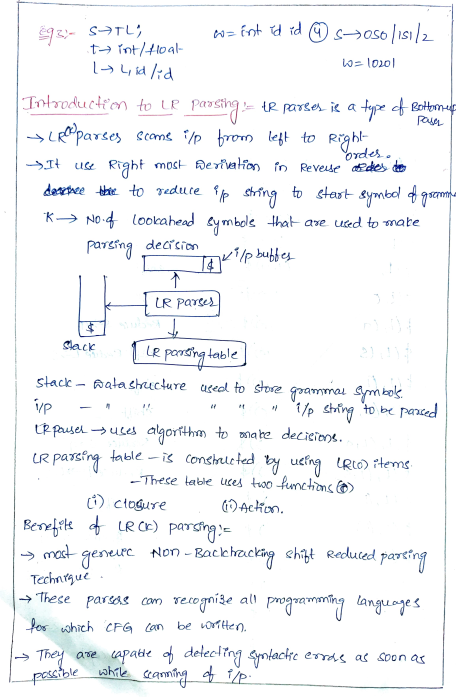 eg2:- S→TL; w= int id id ④ S→0S0/1S1/2
t→int/float w=10201
l→L,id/id
Introduction to LR parsing:= LR parser is a type of Bottom-up parser
→LR(k) parses scans i/p from left to Right order.
→It use Right most Derivation in Reverse
to reduce i/p string to start symbol of gramm
K→ No.of lookahead symbols that are used to make
parsing decision
$ i/p buffer
LR parser
$
Stack
LR parsing table
Stack - Datastructure used to store grammar symbols.
i/p - " " " " " i/p string to be parsed
LR parser → uses algorithm to make decisions.
LR parsing table - is constructed by using LR(0) items
-These table uses two functions
(i) closure (ii) Action.
Benefits of LR(K) parsing:=
→ most generic Non-Backtracking shift Reduced parsing
Technique.
→ These parsers can recognize all programming languages
for which CFG can be written.
→ They are capable of detecting syntactic errors as soon as
possible while scanning of i/p.